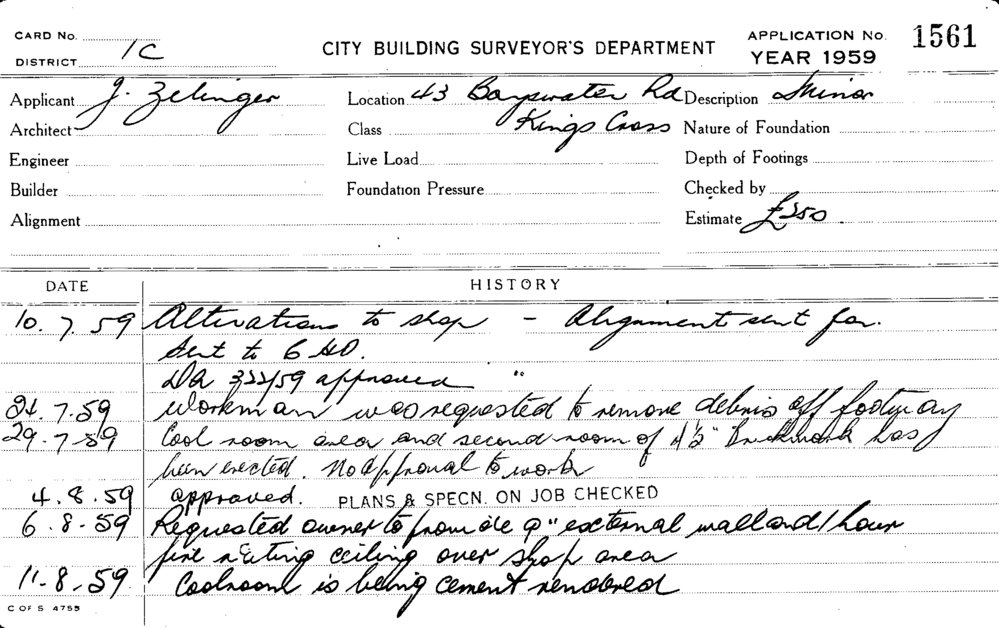 CARD No.
DISTRICT 1C
CITY BUILDING SURVEYOR'S DEPARTMENT
APPLICATION No. 1561
YEAR 1959
Applicant J. Zelinger
Location 43 Bayswater Rd
Description Minor
Architect
Class Kings Cross
Nature of Foundation
Engineer
Live Load
Depth of Footings
Builder
Foundation Pressure
Checked by
Alignment
Estimate £250
DATE HISTORY
10.7.59 Alterations to shop - Alignment sent for.
Sent to C HO.
DA 322/59 approved "
24.7.59 Workman was requested to remove debris off footway
29.7.59 Cool room area and second room of 4½" Brickwork has
been erected. No approval to work
4.8.59 approved. PLANS & SPECN. ON JOB CHECKED
6.8.59 Requested owner to provide 9" external wall and 1 hour
fire rating ceiling over shop area
11.8.59 Coolroom is being cement rendered
C OF S 4755